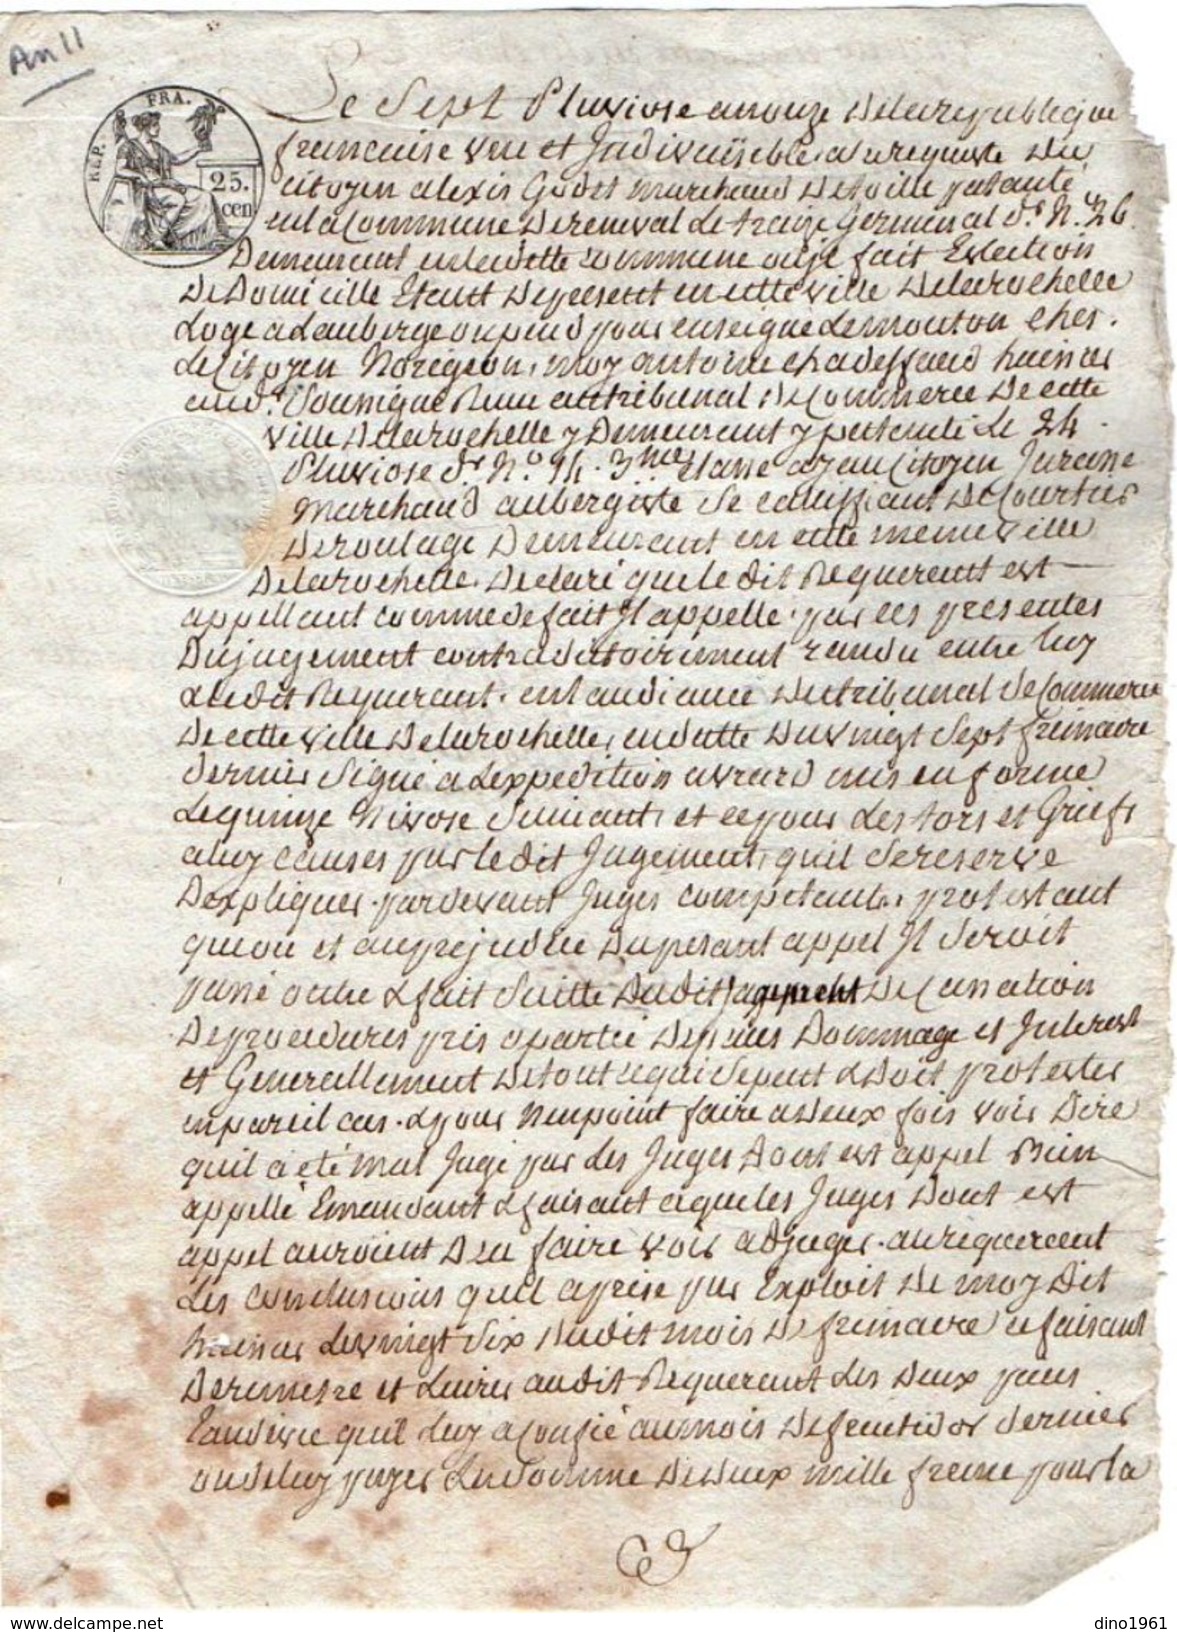 An 11
REP. FRA.
25.
cen
Le Sept Pluviose an onze Delarepublique
francaise une et Indivisible, a la requete Du
citoyen alexis Godet Marchand De toille patanté
en la Commune Dereneval Le traize Germinal dr. N.º 26
Demeurant en ladette commune ouije fait Eslection
De Domicille Etant Depresent en cette ville Delarochelle
Logé a Lauberge ou pend pour enseigne Lemouton ches.
Le Citoyen Norigeon, moy antoine chadeffaud huissier
aud.t Tribunal De Commerce De cette
ville Delarochelle y Demeurant y patenté Le 24
Pluviose dr. N.º 94. 3.me Classe ayau Citoyen Jurasne
Marchand aubergiste se calliffiant De Courtier
Deroulage Demeurant en cette meme ville
Delarochelle. Declaré que le dit Requerant est
appellant comme defait Il appelle par ces presentes
Du jugement contradictoirement randu entre luy
& Ledit Requerant. en Laudiance Du tribunal de Commerce
De cette ville Delarochelle, en datte Du vingt Sept frimaire
dernier Signé a Lexpedition avrard mis en forme
Le quinze Nivose Suivant, et ce pour Les tors et Griefs
a luy causés par le dit Jugement, quil se reserve
Dexpliquer par devant Juges competants, protestant
que ou et au prejudice Du presant appel Il seroit
passé outre & fait suitte Dudit Jugement De Cassation
De procedures pris a partie Depens Dommage et Interest
et Generallement De tout ce qui se peut & Doit protester
en pareil cas. & pour Nen point faire a Deux fois voir Dire
quil a eté Mal Jugé par Les Juges Dont est appel Bien
appellé Emandant & faisant ce que Les Juges Dont est
appel auroient Deu faire voir adjuger au requerant
Les Conclusions quil a prise par Exploit De moy Dit
huissier Le vingt Six Dudit mois De frimaire ce faisant
De remettre et Livrer audit Requerant Les Deux pieces
Laudevie quil Luy a Confié au mois De fructidor dernier
ou de luy payer La somme De Deux mille francs pour la
dino1961
www.delcampe.net